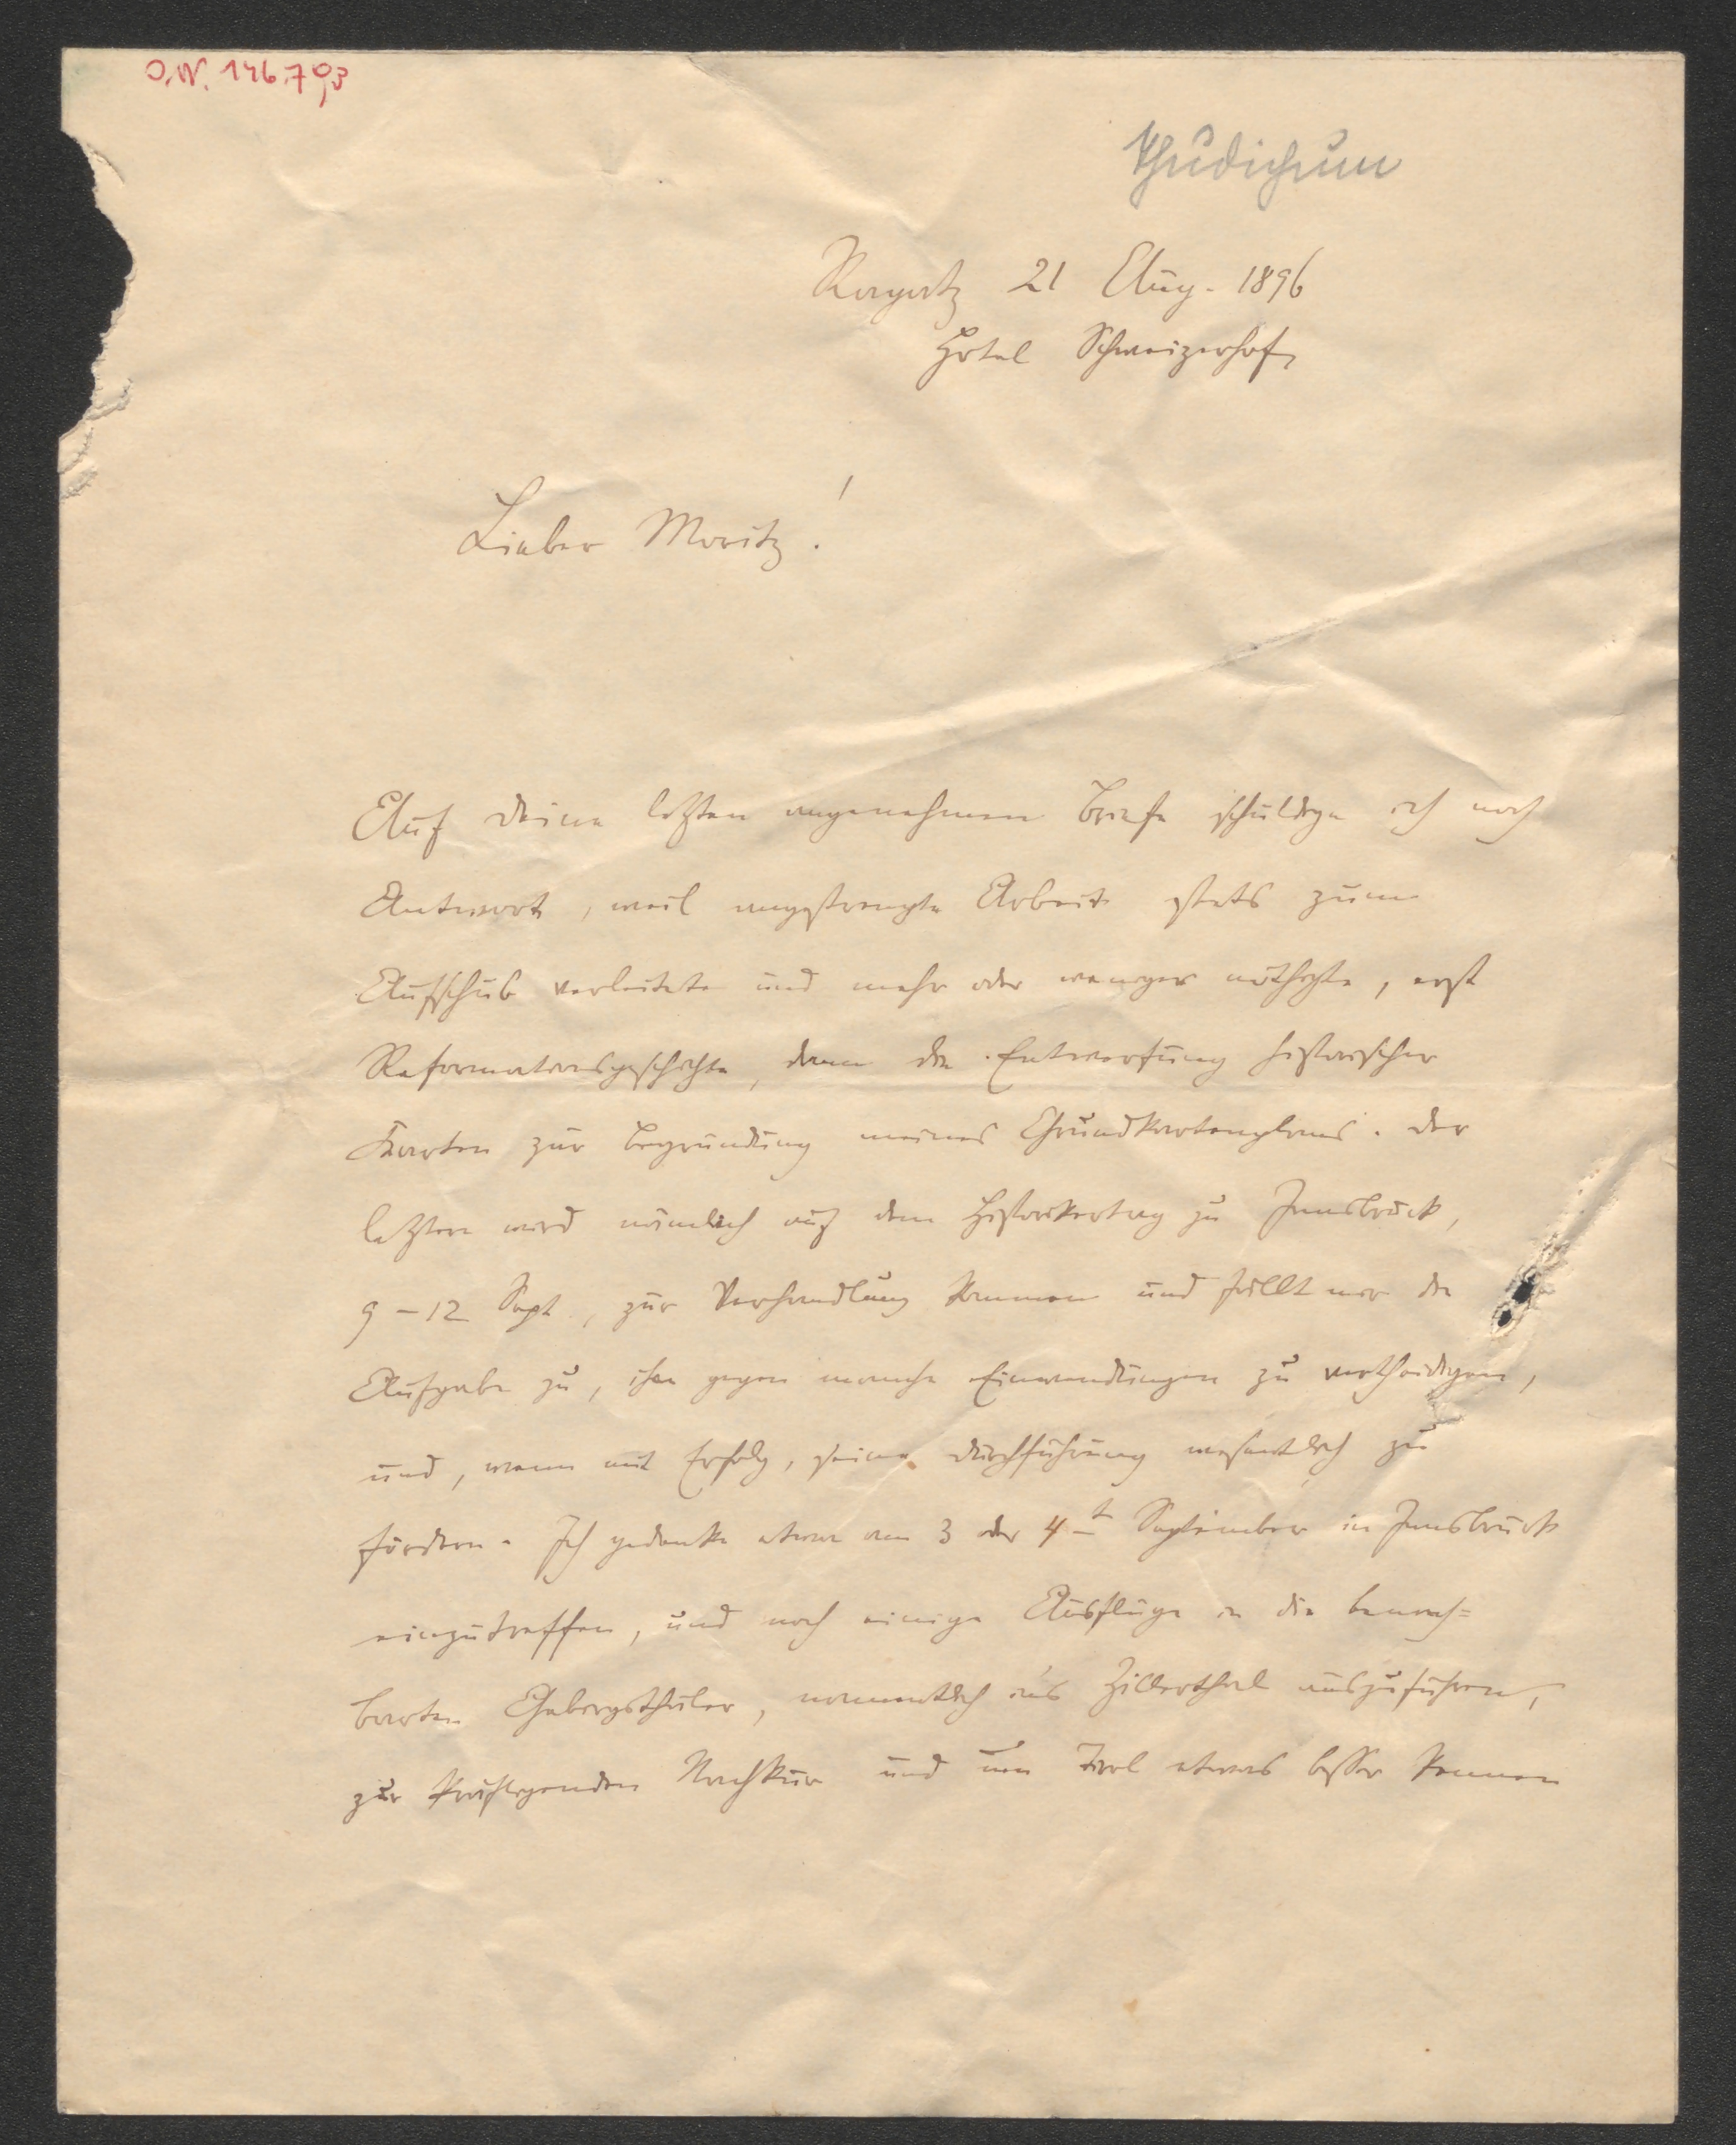 O.N. 146.793
Thudichum
Ragatz 21 Aug. 1896
Hotel Schweizerhof
Lieber Moritz!
Auf deine letzten angenehmen Briefe schuldige ich noch
Antwort, weil angestrengte Arbeit stets zum
Aufschub verleitete und mehr oder weniger nöthigte, erst
Reformationsgeschichte, dann die Entwerfung historischer
Karten zur Begründung meines Grundkartenplans. Der
letztere wird nämlich auf dem Historikertag zu Innsbruck,
9–12 Sept., zur Verhandlung kommen und fällt mir die
Aufgabe zu, ihn gegen manche Einwendungen zu vertheidigen,
und, wenn mit Erfolg, seine Durchführung wesentlich zu
fördern. Ich gedenke etwa am 3 oder 4t September in Innsbruck
einzutreffen, und noch einige Ausflüge in die benach=
barten Gebirgsthäler, namentlich in's Zillerthal auszuführen,
zur kräftigenden Nachkur und um Tirol etwas besser kennen